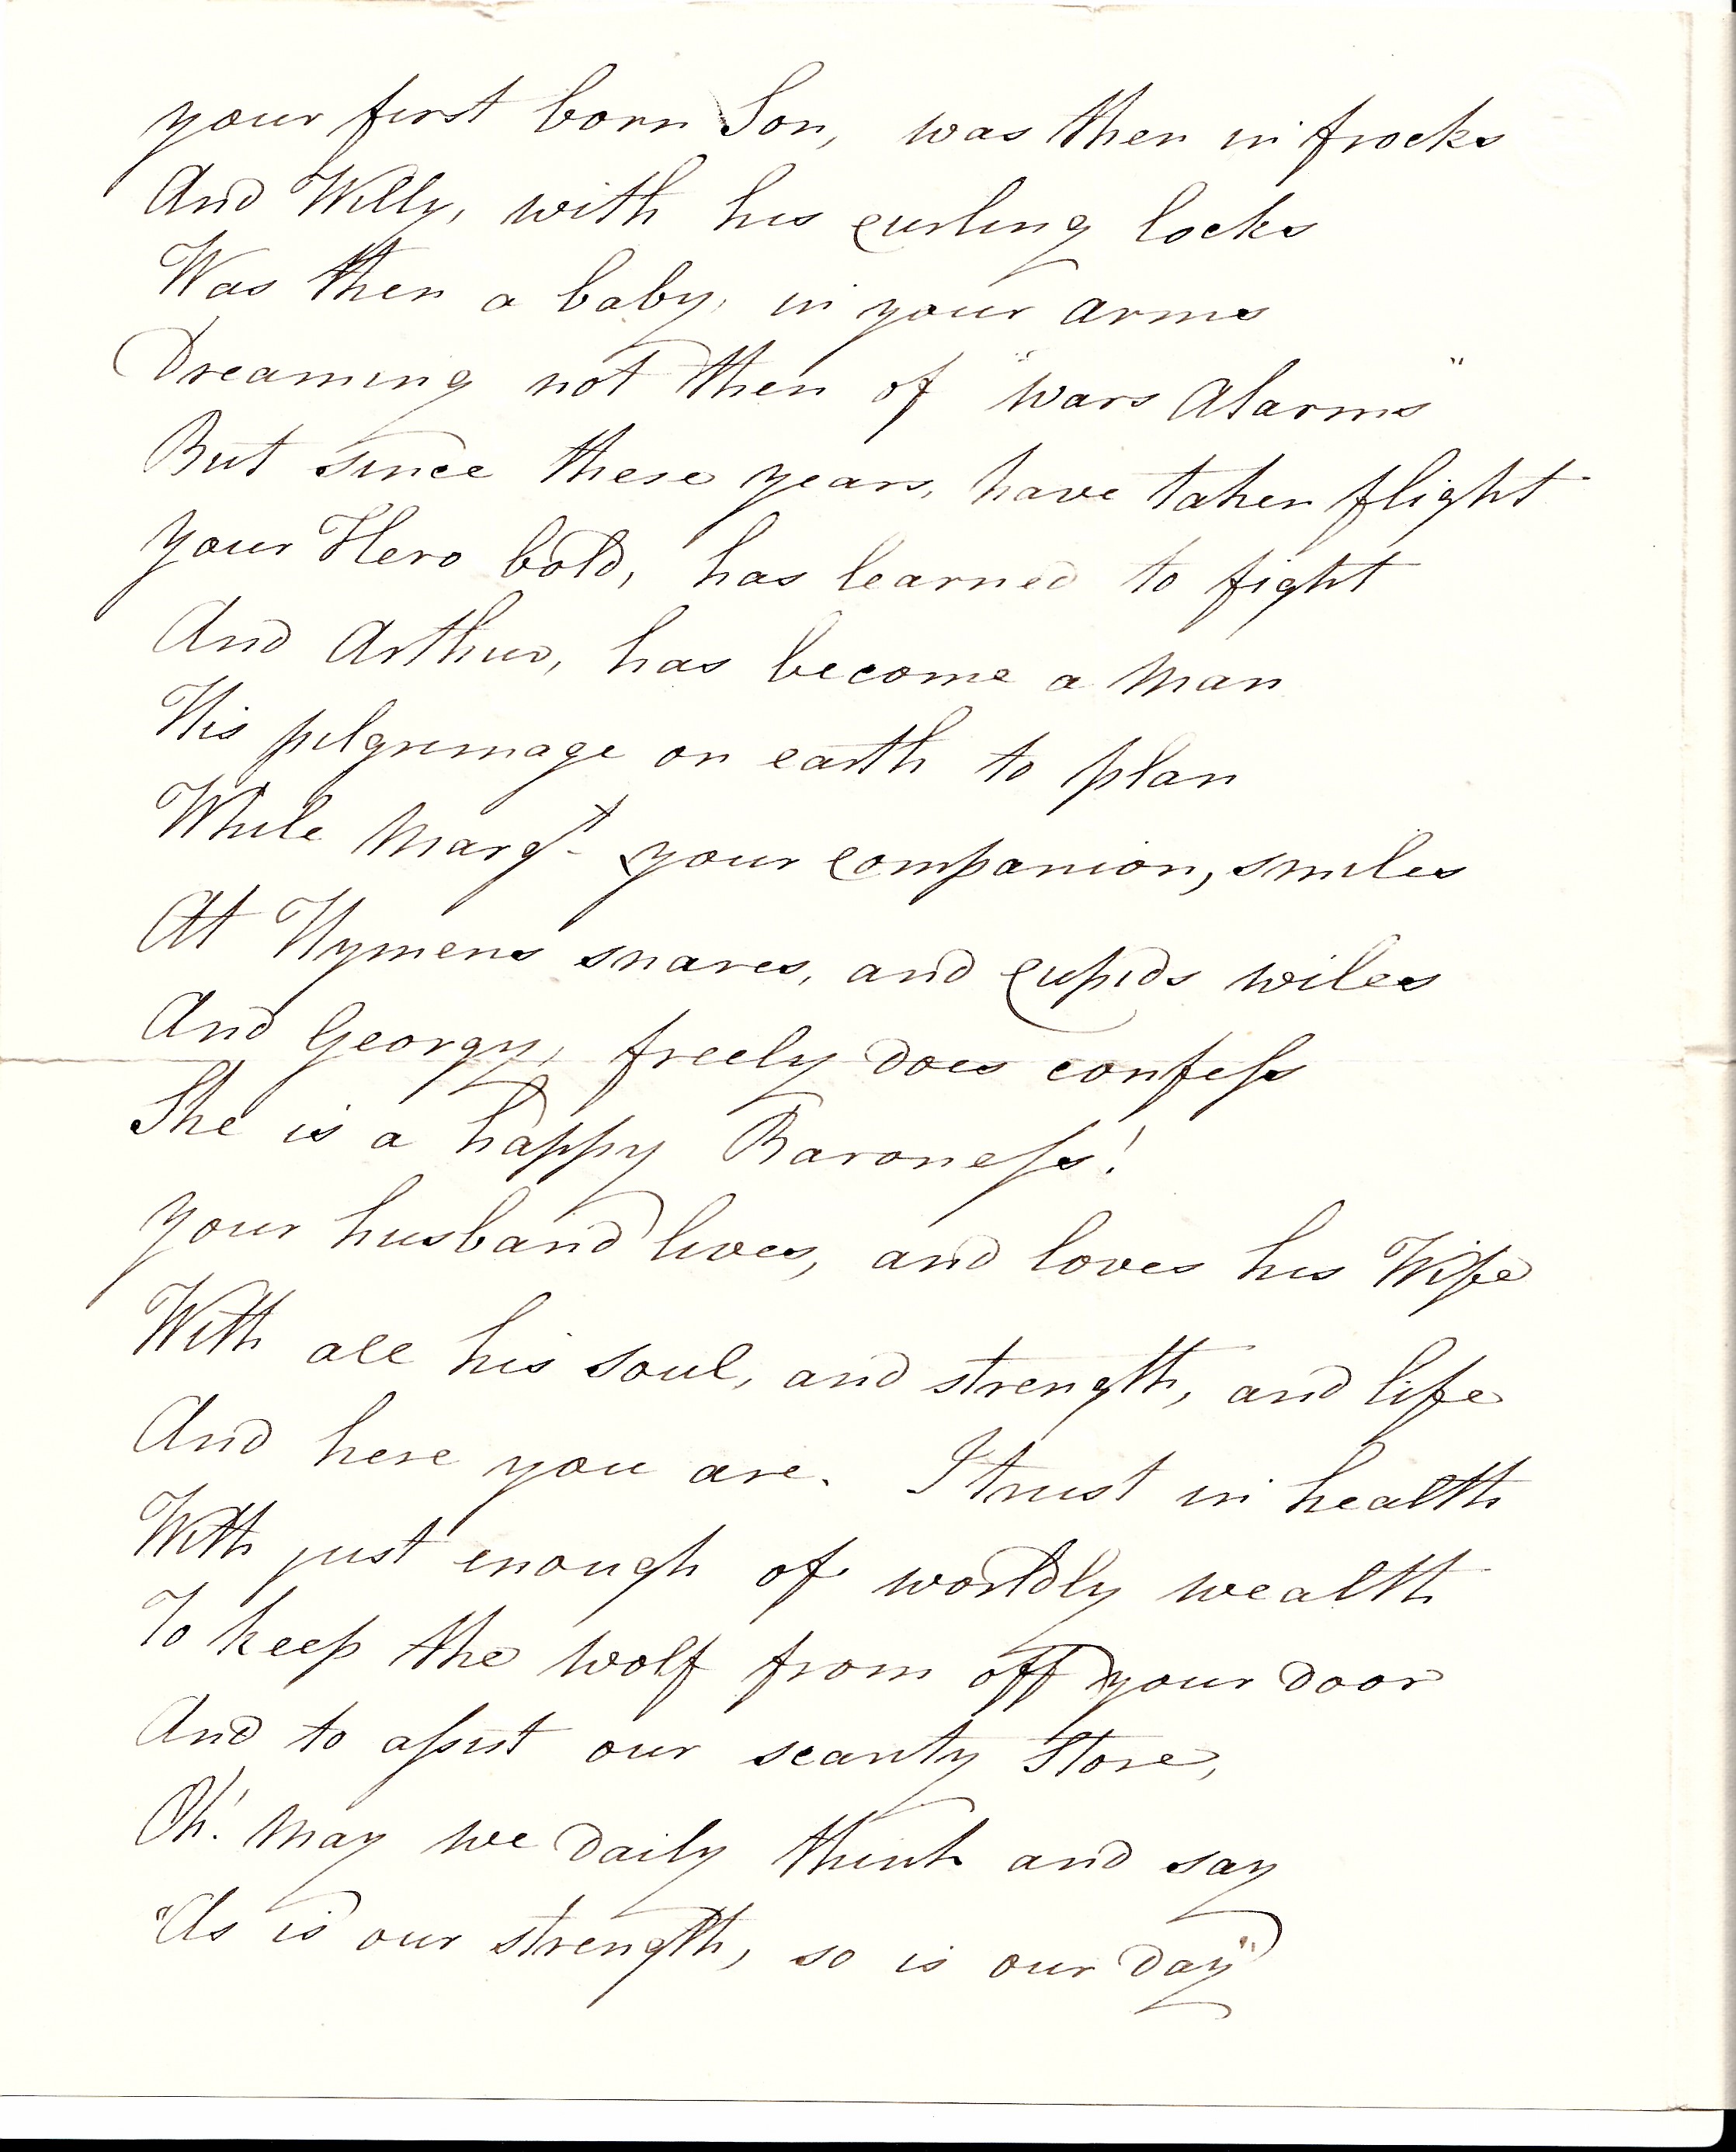 your first born Son, was then in frocks
And Willy, with his curling locks
Was then a baby, in your arms
Dreaming not then of "wars Alarms"
But since these years, have taken flight
your Hero bold, has learned to fight
And Arthur, has become a Man
His pilgrimage on earth to plan
While Margt your companion, smiles
At Hymens snares, and cupids wiles
And Georgy, freely does confeſs
She is a happy Baroneſs!
your husband lives, and loves his Wife
With all his soul, and strength, and life
And here you are. I trust in health
With just enough of worldly wealth
To keep the wolf from off your door
And to aſsist our scanty Store,
Oh! May we daily think and say
"As is our strength, so is our day"